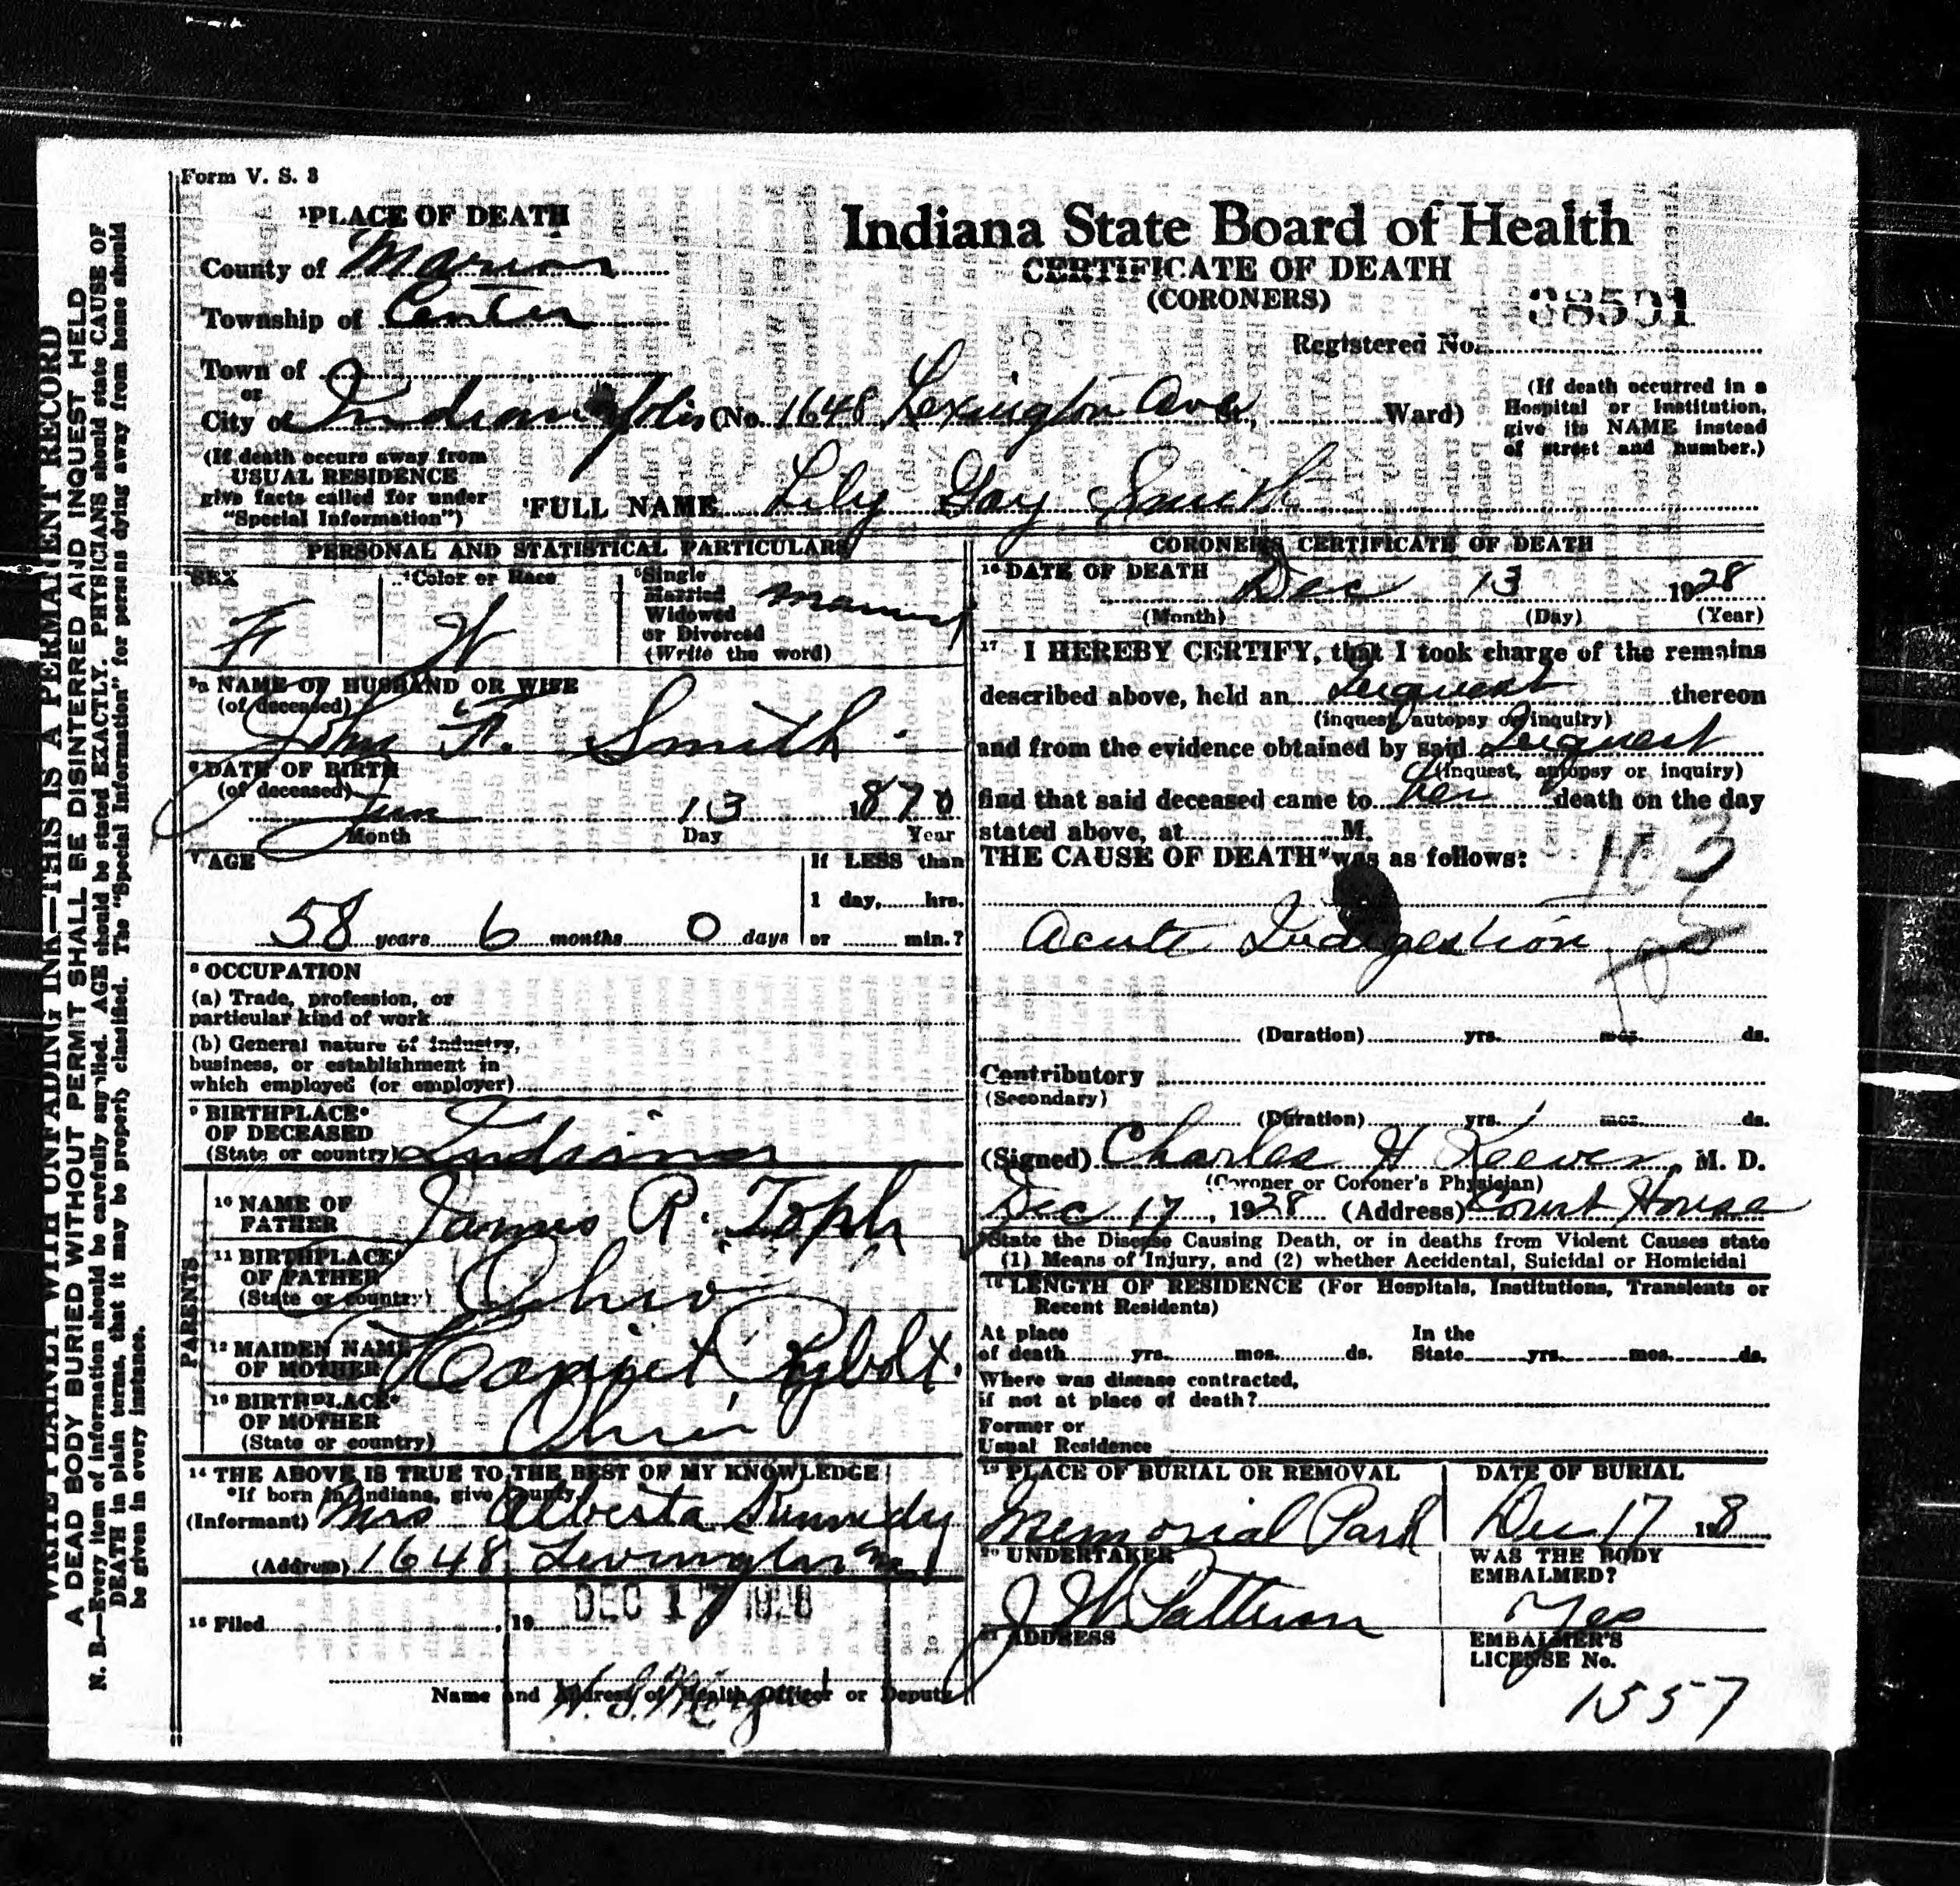 Form V. S. 3
¹PLACE OF DEATH
County of Marion
Township of Center
Town of
or
City of Indianapolis (No. 1648 Lexington Ave, Ward)
(If death occurs away from
USUAL RESIDENCE
give facts called for under
"Special Information")
Indiana State Board of Health
CERTIFICATE OF DEATH
(CORONERS)
38501
Registered No.
(If death occurred in a
Hospital or Institution,
give its NAME instead
of street and number.)
FULL NAME Lily Gay Smith
PERSONAL AND STATISTICAL PARTICULARS
SEX
F
Color or Race
W
Single
Married
Widowed
or Divorced
(Write the word)
Married
5a NAME OF HUSBAND OR WIFE
(of deceased)
John F. Smith
6 DATE OF BIRTH
(of deceased)
Jun 13 1870
Month Day Year
7 AGE
If LESS than
1 day, hrs.
58 years 6 months 0 days or min.?
8 OCCUPATION
(a) Trade, profession, or
particular kind of work
(b) General nature of industry,
business, or establishment in
which employed (or employer)
9 BIRTHPLACE*
OF DECEASED
(State or country) Indiana
PARENTS
10 NAME OF
FATHER
James R. Toph
11 BIRTHPLACE*
OF FATHER
(State or country)
Ohio
12 MAIDEN NAME
OF MOTHER
Rybolt.
13 BIRTHPLACE*
OF MOTHER
(State or country)
Ohio
14 THE ABOVE IS TRUE TO THE BEST OF MY KNOWLEDGE
*If born in Indiana, give County.
(Informant) Mrs Alberta Kennedy
(Address) 1648 Lexington
15 Filed , 19 DEC 17 1928
Name and Address of Health Officer or Deputy
CORONERS CERTIFICATE OF DEATH
16 DATE OF DEATH
Dec 13 1928
(Month) (Day) (Year)
17 I HEREBY CERTIFY, that I took charge of the remains
described above, held an Inquest thereon
(inquest, autopsy or inquiry)
and from the evidence obtained by said Inquest
(inquest, autopsy or inquiry)
find that said deceased came to her death on the day
stated above, at M.
THE CAUSE OF DEATH* was as follows:
103
Acute Indigestion
(Duration) yrs. mos. ds.
Contributory
(Secondary)
(Duration) yrs. mos. ds.
(Signed) Charles H Keever, M. D.
(Coroner or Coroner's Physician)
Dec 17, 1928 (Address) Court House
*State the Disease Causing Death, or in deaths from Violent Causes state
(1) Means of Injury, and (2) whether Accidental, Suicidal or Homicidal
18 LENGTH OF RESIDENCE (For Hospitals, Institutions, Transients or
Recent Residents)
At place In the
of death yrs. mos. ds. State yrs. mos. ds.
Where was disease contracted,
if not at place of death?
Former or
Usual Residence
19 PLACE OF BURIAL OR REMOVAL
Memorial Park
DATE OF BURIAL
Dec 17 198
20 UNDERTAKER
J W Patterson
21 ADDRESS
WAS THE BODY
EMBALMED?
Yes
EMBALMER'S
LICENSE No.
1557
WRITE PLAINLY WITH UNFADING INK—THIS IS A PERMANENT RECORD
A DEAD BODY BURIED WITHOUT PERMIT SHALL BE DISINTERRED AND INQUEST HELD
N. B.—Every item of information should be carefully supplied. AGE should be stated EXACTLY. PHYSICIANS should state CAUSE OF
DEATH in plain terms, that it may be properly classified. The "Special Information" for persons dying away from home should
be given in every instance.